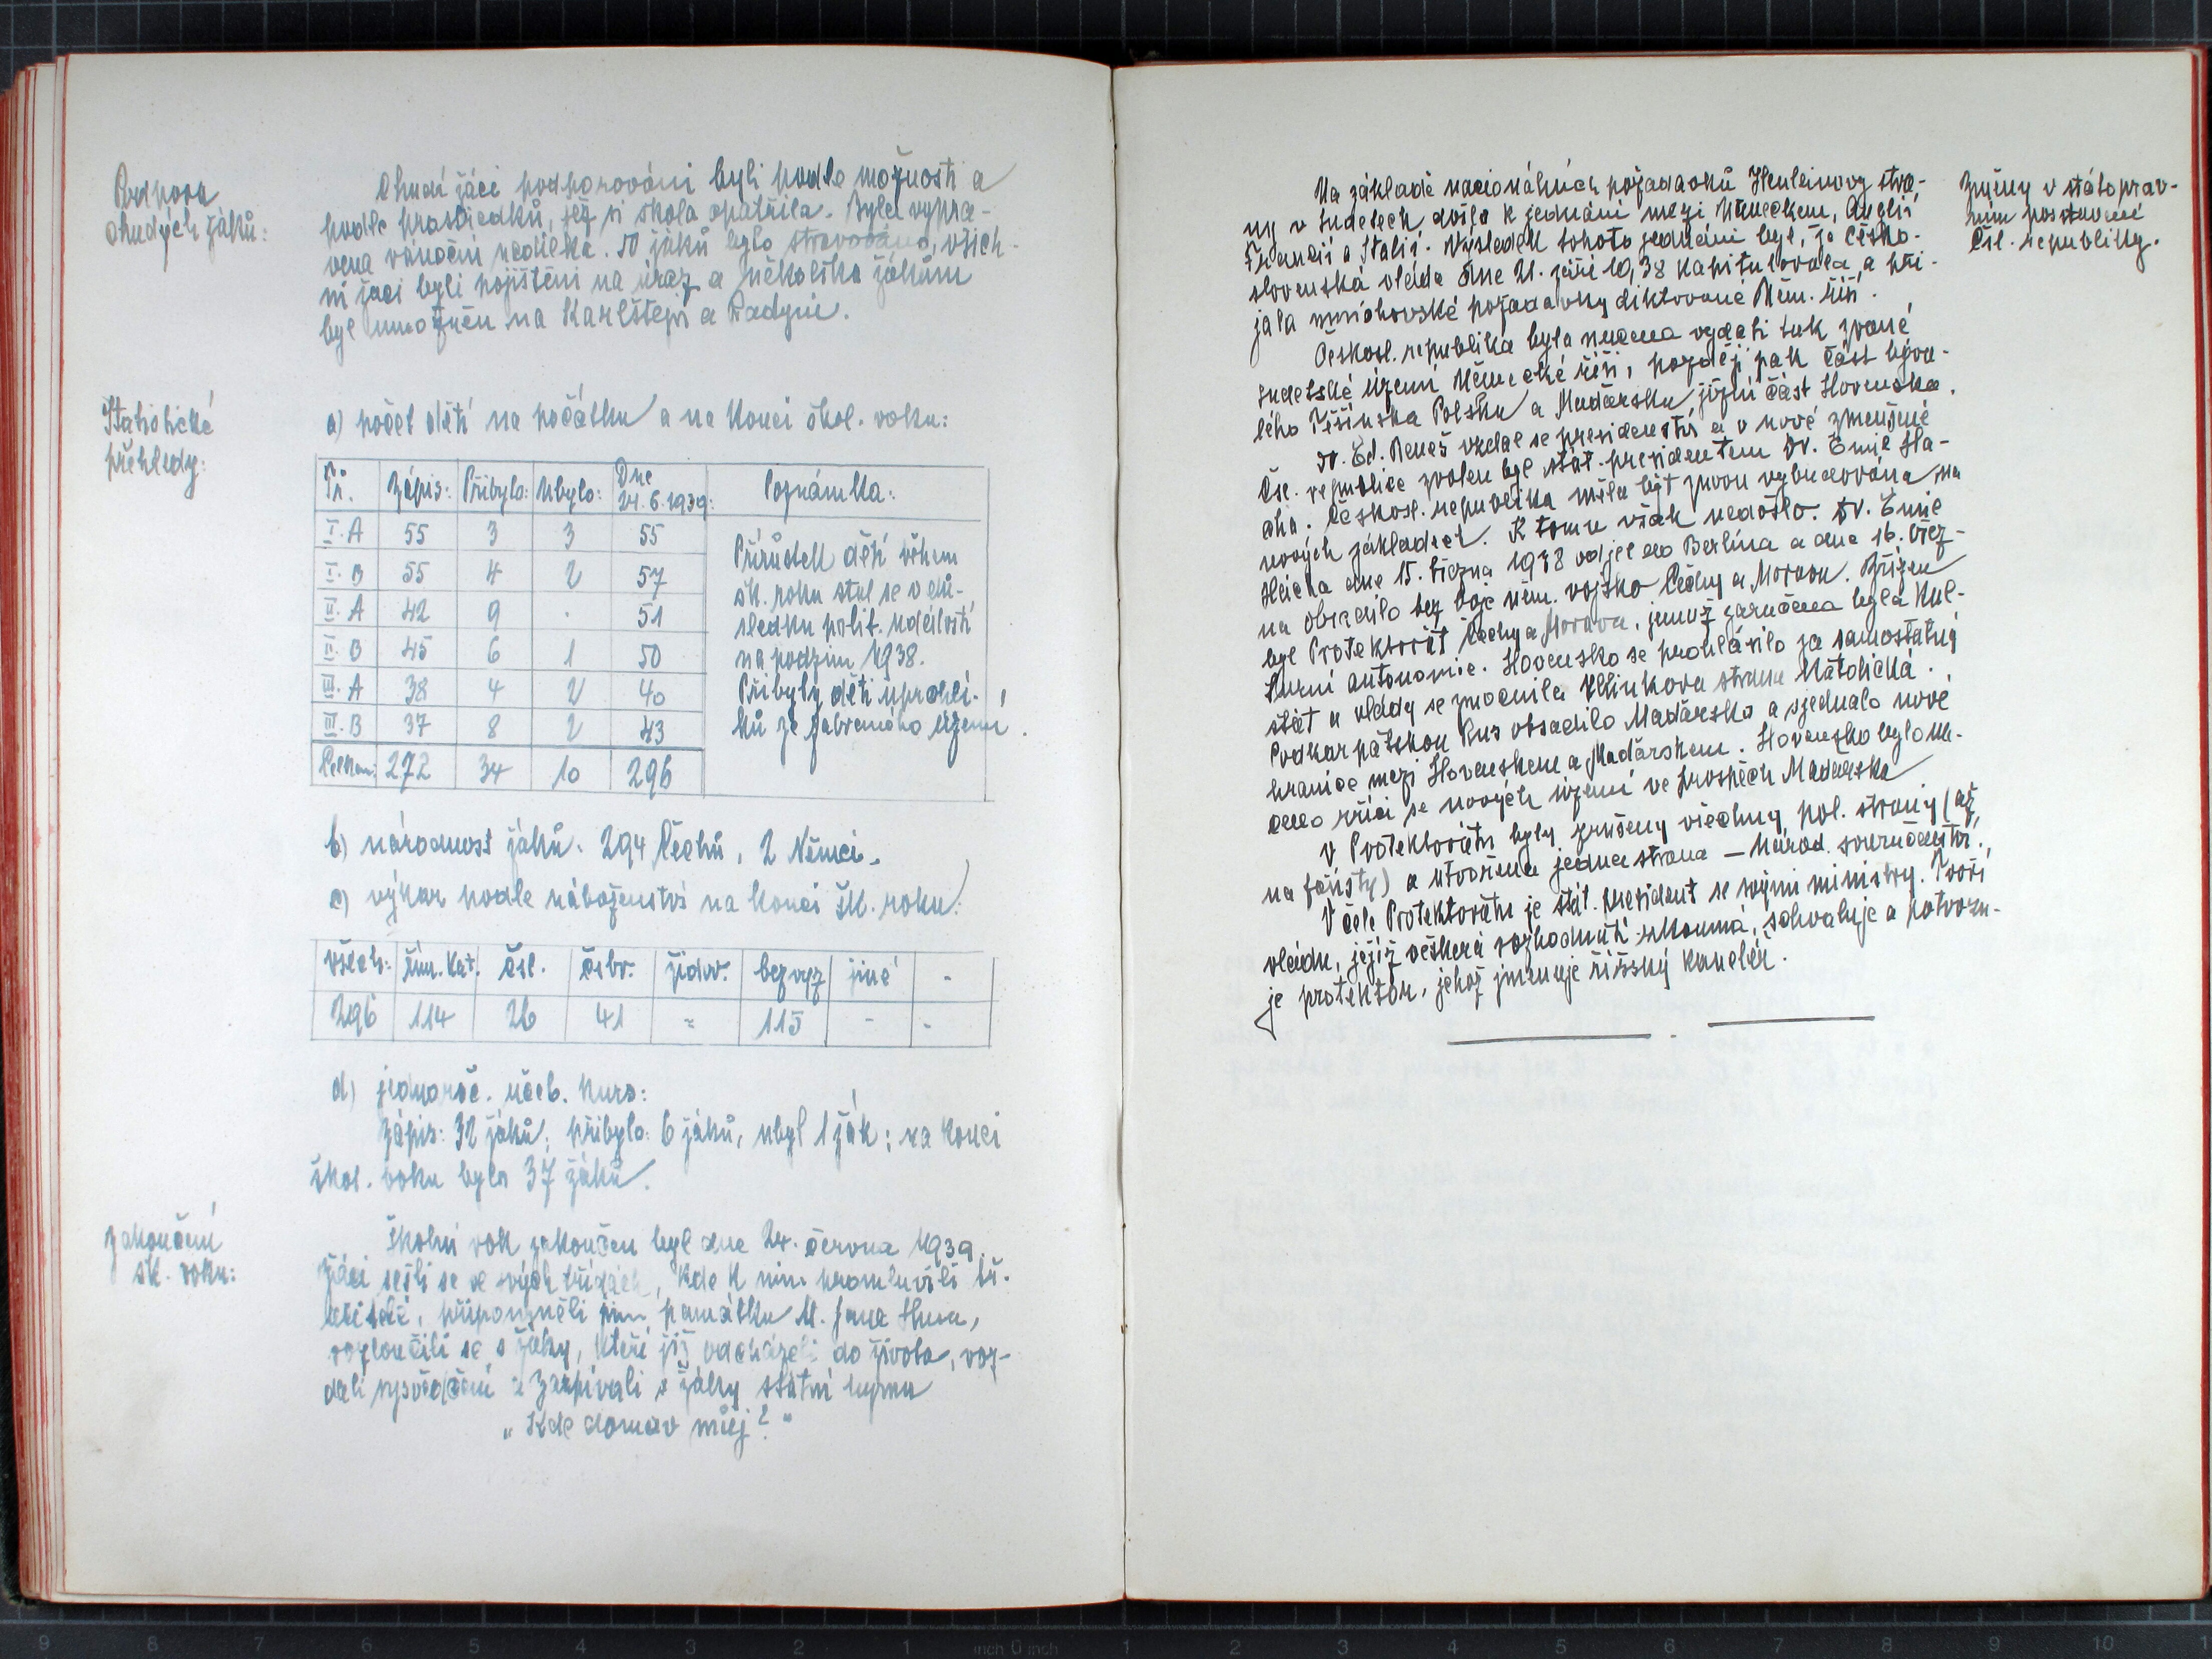 Podpora
chudých žáků:
Chudí žáci podporováni byli podle možnosti a
podle prostředků, jež si škola opatřila. Byla vypra-
vena vánoční nadílka. 50 žáků bylo stravováno, všich-
ni žáci byli pojištěni na úraz a několika žákům
byl umožněn na Karlštejn a Radyni.
Statistické
přehledy:
a) počet dětí na počátku a na konci škol. roku:
Tř. Zápis: Přibylo: Ubylo: Dne 24.6.1939: Poznámka:
I. A 55 3 3 55
I. B 55 4 2 57
II. A 42 9 . 51
II. B 45 6 1 50
III. A 38 4 2 40
III. B 37 8 2 43
Celkem: 272 34 10 296
Přírůstek dětí během
šk. roku stal se v dů-
sledku polit. událostí
na podzim 1938.
Přibyly děti uprchlí-
ků ze zabraného území.
b) národnost žáků: 294 Čechů, 2 Němci.
c) výkaz podle náboženství na konci šk. roku:
všech: řím. kat. čsl. česbr. židov. bezvyz jiné -
296 114 26 41 - 115 - -
d) jednoroč. učeb. kurs:
Zápis: 32 žáků; přibylo: 6 žáků, ubyl 1 žák; na konci
škol. roku bylo 37 žáků.
Zakončení
šk. roku:
Školní rok zakončen byl dne 24. června 1939.
Žáci sešli se ve svých třídách, kde k nim promluvili tř.
učitelé, připomněli jim památku M. Jana Husa,
rozloučili se s žáky, kteří již odcházeli do života, roz-
dali vysvědčení a zazpívali s žáky státní hymnu
„Kde domov můj?"
Na základě nacionálních požadavků Henleinovy stra-
ny v Sudetech došlo k jednání mezi Německem, Anglií
Francií a Itálií. Výsledek tohoto jednání byl, že česko-
slovenská vláda dne 21. září 1938 kapitulovala a při-
jala mnichovské požadavky diktované Něm. říší.
Českosl. republika byla nucena vydati tak zvané
sudetské území Německé říši, později pak část býva-
lého Těšínska Polsku a Maďarsku jižní část Slovenska.
Dr. Ed. Beneš vzdal se presidentství a v nové zmenšené
Čsl. republice zvolen byl stát. presidentem Dr. Emil Há-
cha. Českosl. republika měla být znovu vybudována na
nových základech. K tomu však nedošlo. Dr. Emil
Hácha dne 15. března 1938 odjel do Berlína a dne 16. břez-
na obsadilo bez boje něm. vojsko Čechy a Moravu. Zřízen
byl Protektorát Čechy a Morava, jemuž zaručena byla kul-
turní autonomie. Slovensko se prohlásilo za samostatný
stát a vlády se zmocnila Hlinkova strana katolická.
Podkarpatskou Rus obsadilo Maďarsko a sjednalo nové
hranice mezi Slovenskem a Maďarskem. Slovensko bylo nu-
ceno zříci se nových území ve prospěch Maďarska
V Protektorátu byly zrušeny všechny pol. strany (až
na fašisty) a utvořena jedna strana – Národ. souručenství.
V čele Protektorátu je stát. president se svými ministry. Tvoří
vládu, jejíž veškerá rozhodnutí zkoumá, schvaluje a potvrzu-
je protektor, jehož jmenuje říšský kancléř.
Změny v státoprav-
ním postavení
Čsl. republiky.
9 8 7 6 5 4 3 2 1 inch 0 inch 1 2 3 4 5 6 7 8 9 10